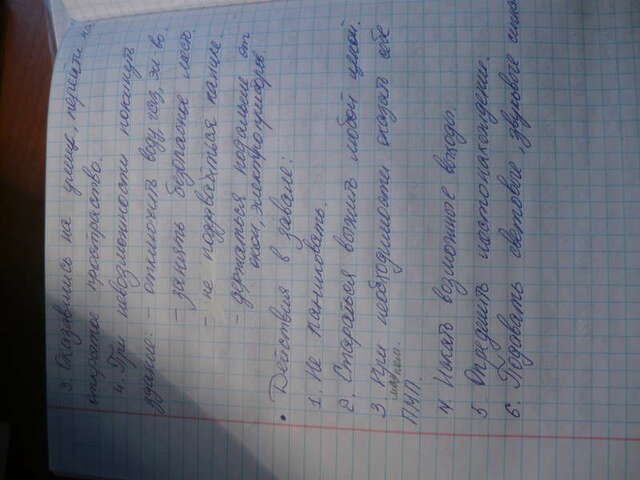 3. Оказавшись на улице, перейти на
открытое пространство.
4. При невозможности покинуть
здание: - отключить воду, газ, эл-во.
- занять безопасное место
- не поддаваться панике
- держаться подальше от
окон, электроприборов.
• Действия в завале:
1. Не паниковать.
2. Стараться выжить любой ценой.
3 При необходимости оказать себе
ПМП.
4. Искать возможное выходы.
5 Определить местонахождение.
6. Подавать световые, звуковые